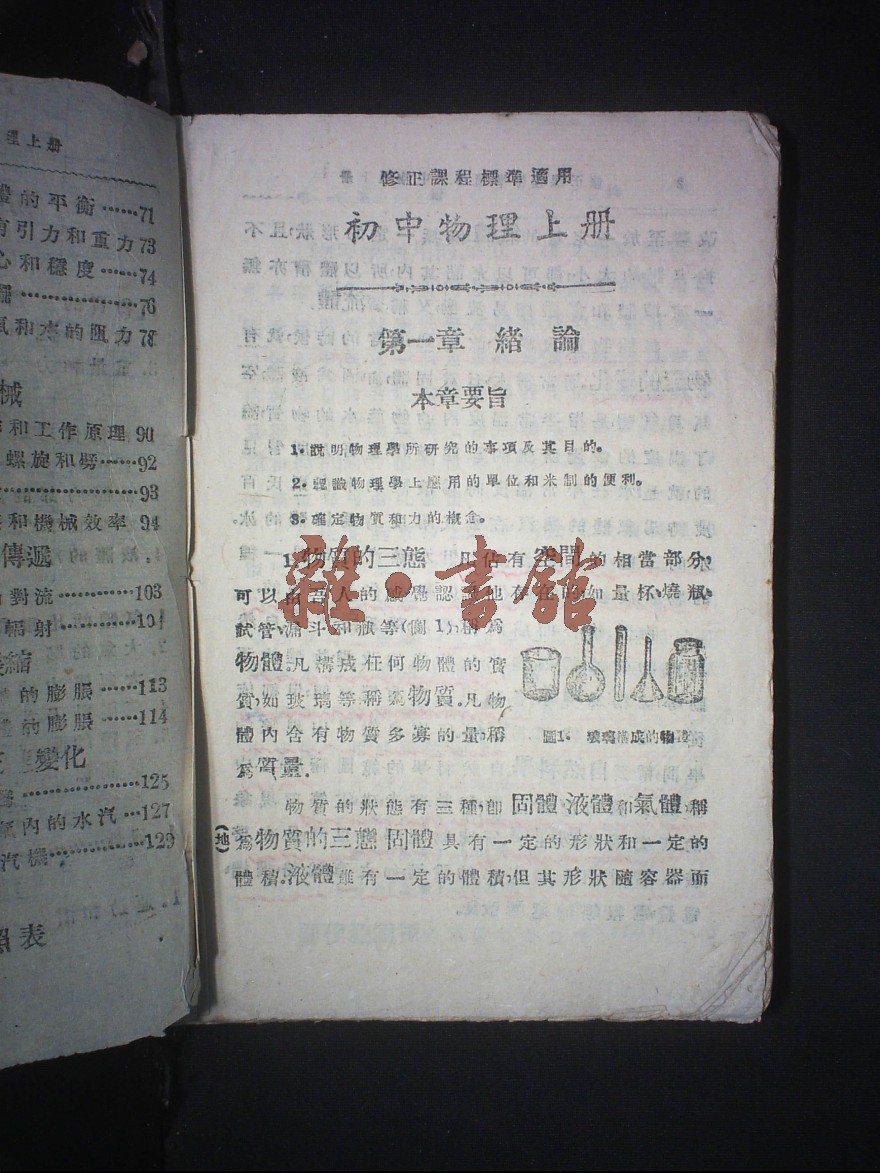 理上册
的平衡……71
有引力和重力73
心和穩度……74
……76
氣和水的阻力78
械
和工作原理90
螺旋和劈……92
……93
和機械效率94
傳遞
對流……103
輻射……104
縮
的膨脹……113
的膨脹……114
變化
……125
氣內的水汽…127
汽機……129
表
修正課程標準適用
初中物理上册
第一章 緒論
本章要旨
1.說明物理學所研究的事項及其目的。
2.認識物理學上應用的單位和米制的便利。
3.確定物質和力的概念。
1.物質的三態 凡佔有空間的相當部分,
可以由吾人的感覺認識他存在的,如量杯,燒瓶,
試管,漏斗和瓶等(圖1),稱爲
物體.凡構成任何物體的實
質,如玻璃等稱爲物質.凡物
體內含有物質多寡的量,稱
爲質量.
圖1. 玻璃搭成的物體
物質的狀態有三種,卽固體,液體和氣體,稱
爲物質的三態.固體具有一定的形狀和一定的
體積.液體雖有一定的體積,但其形狀隨容器而
(地)
雜·書館